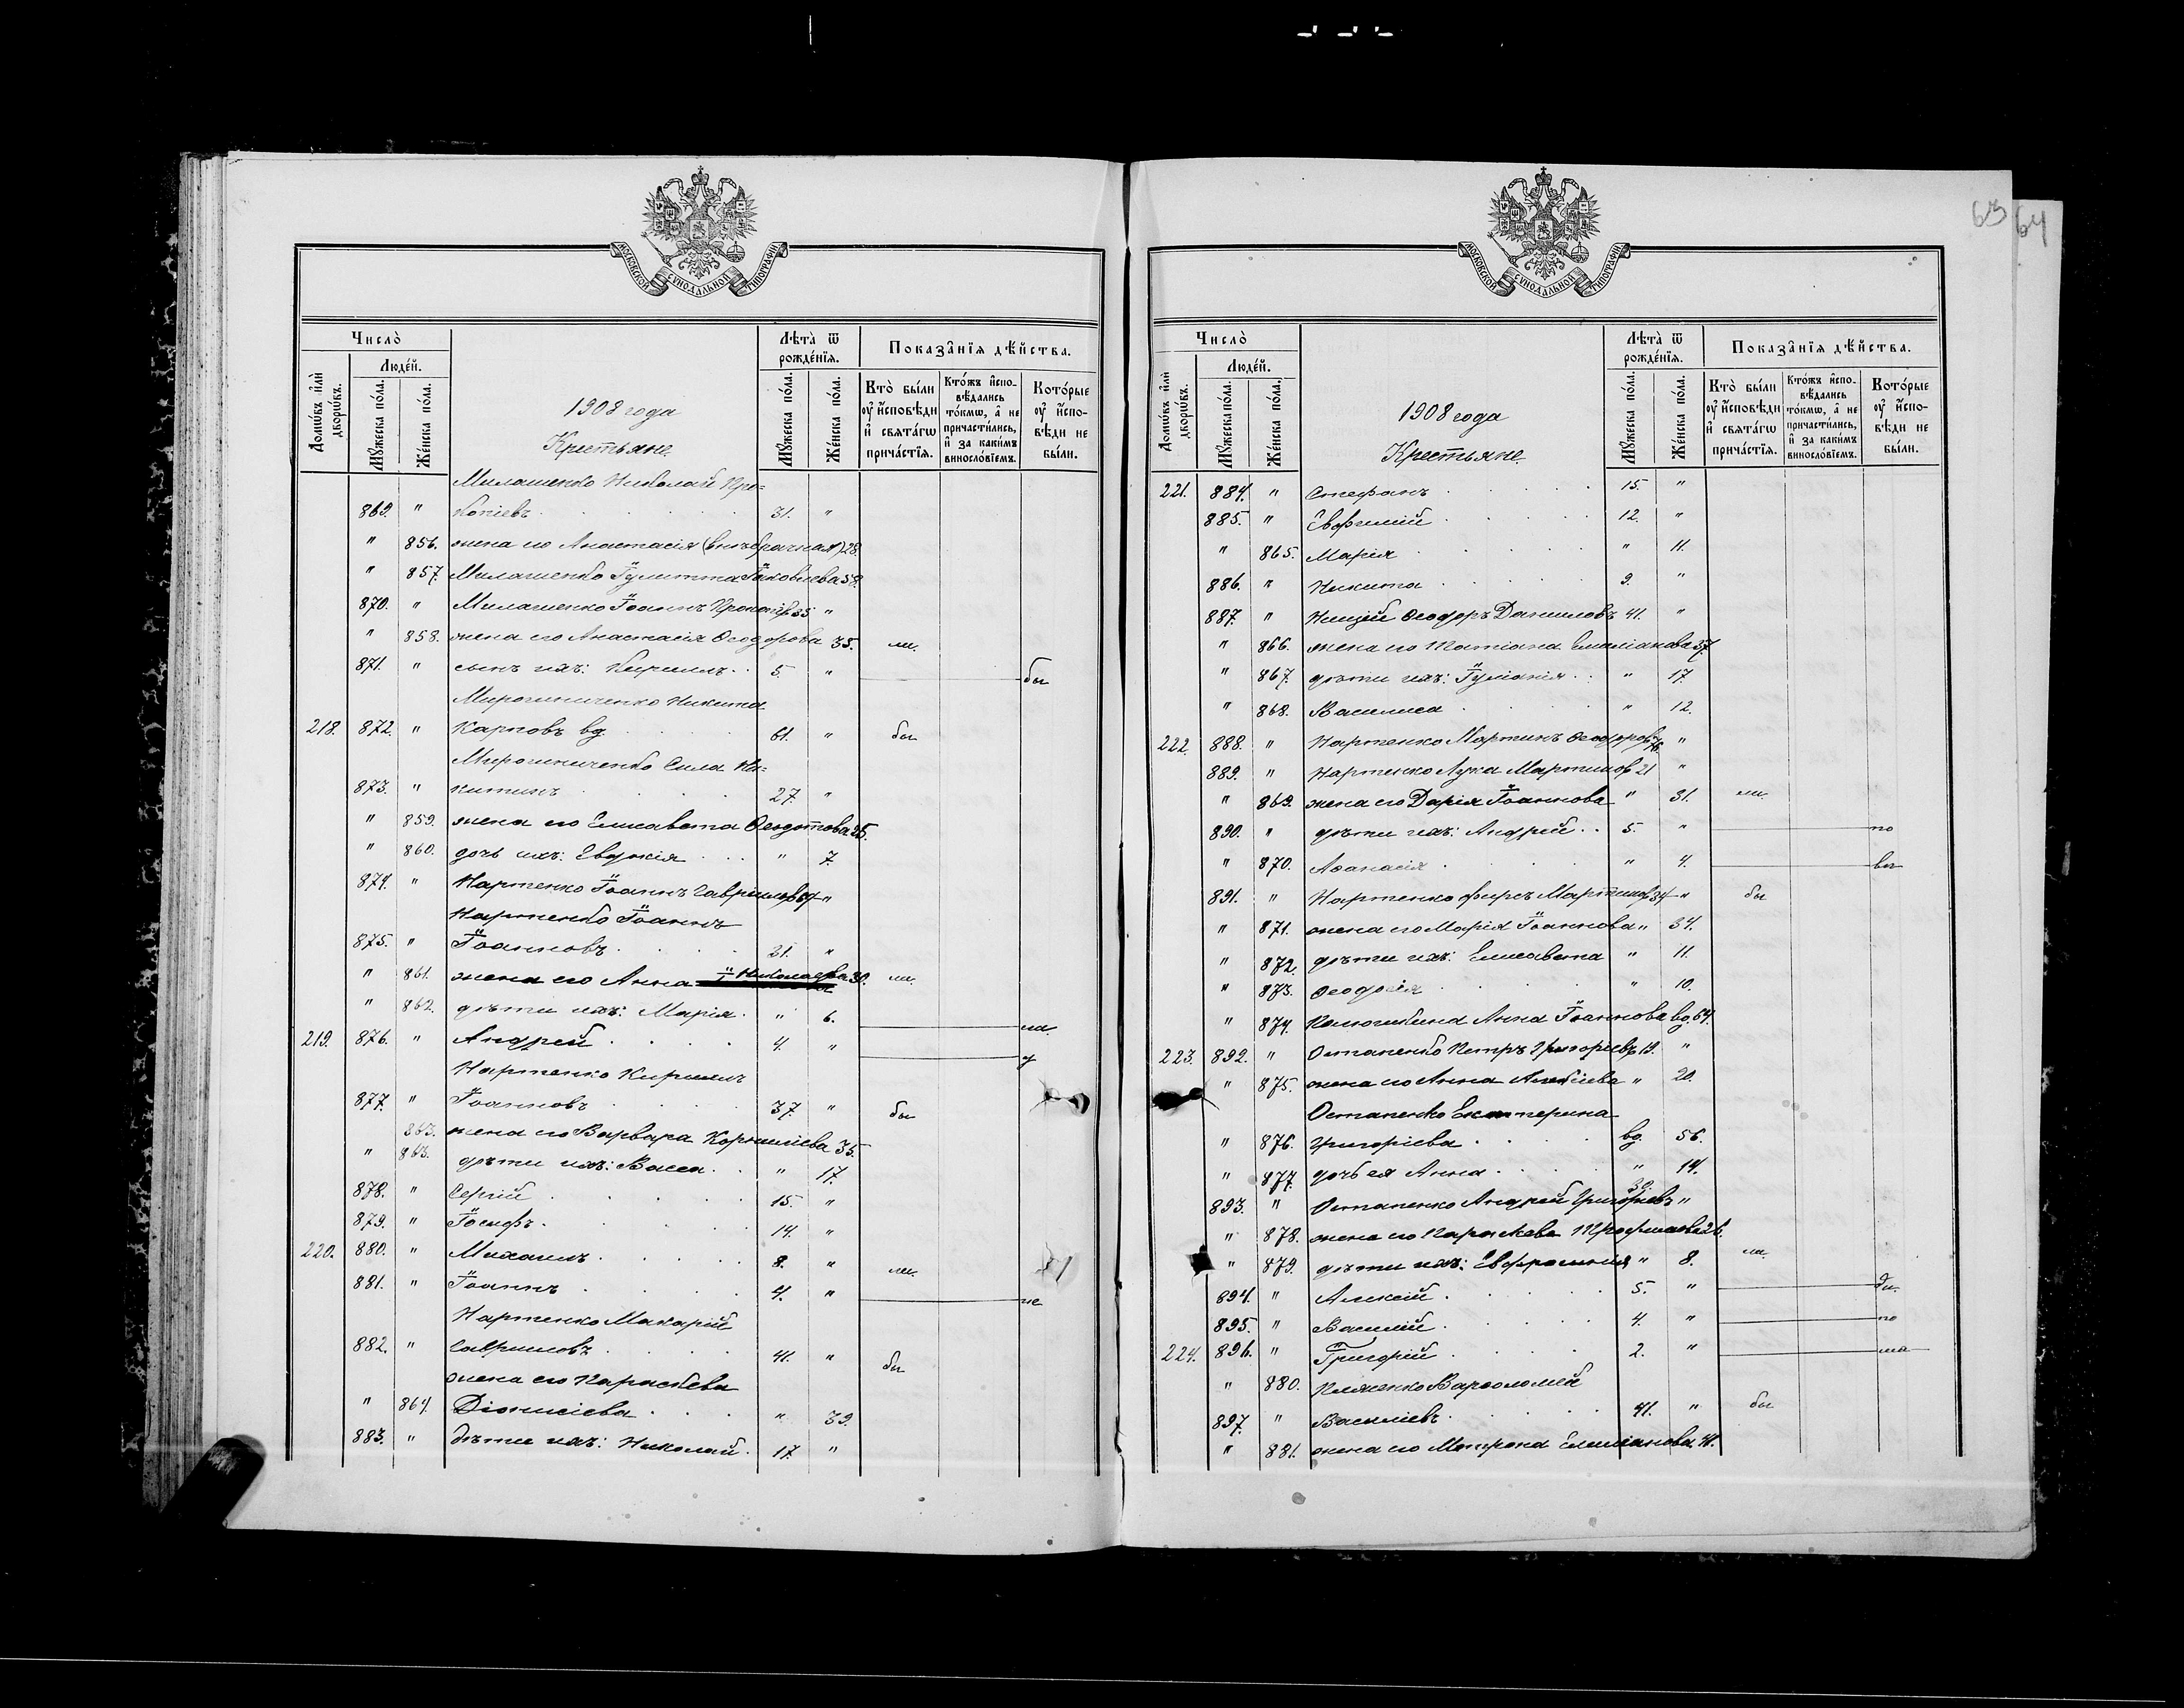 63 64
МОСКОВСКОЙ СѴНОДАЛЬНОЙ ТИПОГРАФІИ
Число̀
Домѡ́въ и҆лѝ дворѡ́въ.
Люде́й.
Мꙋ́жеска по́ла.
Же́нска по́ла.
1908 года
Крестьяне
Лѣта̀ ѿ рожде́нїѧ.
Мꙋ́жеска по́ла.
Же́нска по́ла.
Показа̑нїѧ дѣ́йства.
Кто̀ бы́ли ᲂу҆ и҆́сповѣди и҆ свѧта́гѡ прича́стїѧ.
Кто́жъ и҆спо- вѣ́дались то́кмѡ, а҆ не причасти́лись, и҆ за каки́мъ винослѡ́вїемъ.
Кото́рые ᲂу҆ и҆́спо- вѣди не бы́ли.
Милашенко Николай Про=
869. " копіевъ 31. "
" 856. жена его Анастасія (внѣбрачная) 28.
" 857. Милашенко Іулитта Іаковлева 58.
870. " Милашенко Іоаннъ Прокопіев 35 "
" 858. жена его Анастасія Ѳеодорова 35. ли.
871. " сынъ ихъ: Кириллъ 5. " бы
Мирошниченко Никита
218. 872. " Карповъ вд. 61. " бы
Мирошниченко Сила Ни=
873. " китинъ 27. "
" 859. жена его Елисавета Ѳеодотова 25.
" 860. дочь ихъ: Евдокія " 7.
874. " Нартенко Іоаннъ Гавриловъ "
Нартенко Іоаннъ
875. " Іоанновъ 31. "
" 861. жена его Анна Николаева 30. ли.
" 862. дѣти ихъ: Марія " 6. ли.
219. 876. " Андрей 4. "
Нартенко Кириллъ
877. " Іоанновъ 37. " бы
863. жена его Варвара Корниліева 35.
" 863. дѣти ихъ: Васса " 17.
878. " Сергій 15. "
879. " Іосифъ 14. "
220. 880. " Михаилъ 8. " ли.
881. " Іоаннъ 4. " не
Нартенко Макарій
882. " Гавриловъ 41. " бы
жена его Параскева
" 864. Діонисіева " 39.
883. " дѣти ихъ: Николай 17. "
МОСКОВСКОЙ СѴНОДАЛЬНОЙ ТИПОГРАФІИ
Число̀
Домѡ́въ и҆лѝ дворѡ́въ.
Люде́й.
Мꙋ́жеска по́ла.
Же́нска по́ла.
1908 года
Крестьяне
Лѣта̀ ѿ рожде́нїѧ.
Мꙋ́жеска по́ла.
Же́нска по́ла.
Показа̑нїѧ дѣ́йства.
Кто̀ бы́ли ᲂу҆ и҆́сповѣди и҆ свѧта́гѡ прича́стїѧ.
Кто́жъ и҆спо- вѣ́дались то́кмѡ, а҆ не причасти́лись, и҆ за каки́мъ винослѡ́вїемъ.
Кото́рые ᲂу҆ и҆́спо- вѣди не бы́ли.
221. 884. " Стефанъ 15. "
885. " Евфимій 12. "
" 865. Марія " 11.
886. " Никита 9. "
887. " Ѳеодоръ Даниловъ 41. "
" 866. жена его Татіана Емиліанова 37.
" 867. дѣти ихъ: Іуліанія " 17.
" 868. Василиса " 12.
222. 888. " Нартенко Мартинъ Ѳеодоров "
889. " Нартенко Лука Мартинов 21 "
" 869. жена его Дарія Іоаннова " 31. ли.
890. " дѣти ихъ: Андрей 5. " по
" 870. Аѳанасія " 4. вы
891. " Нартенко Фирсъ Мартинов 34 " бы
" 871. жена его Марія Іоаннова " 34.
" 872. дѣти ихъ: Елисавета " 11.
" 873. Ѳеодосія " 10.
" 874. Анна Іоаннова вд. 64.
223. 892. " Остапенко Петръ Григоріевъ 19. "
" 875. жена его Анна Алексіева " 20.
Остапенко Екатерина
" 876. Григоріева вд. 56.
" 877. дочь ея Анна " 14.
893. " Остапенко Андрей Григоріевъ 30. "
" 878. жена его Параскева Трофимова 26.
" 879. дѣти ихъ: Евфросинія " 8. ли.
894. " Алексій 5. "
895. " Василій 4. " по
224. 896. " Григорій 2. "
" 880. Варѳоломей
897. " Василіевъ 41. " бы
" 881. жена его Матрона Емиліанова 41.